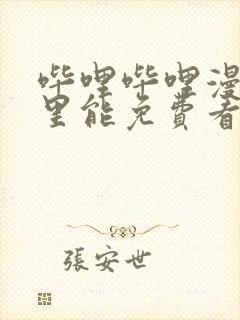 哔哩哔哩漫
里能免費看
張安世